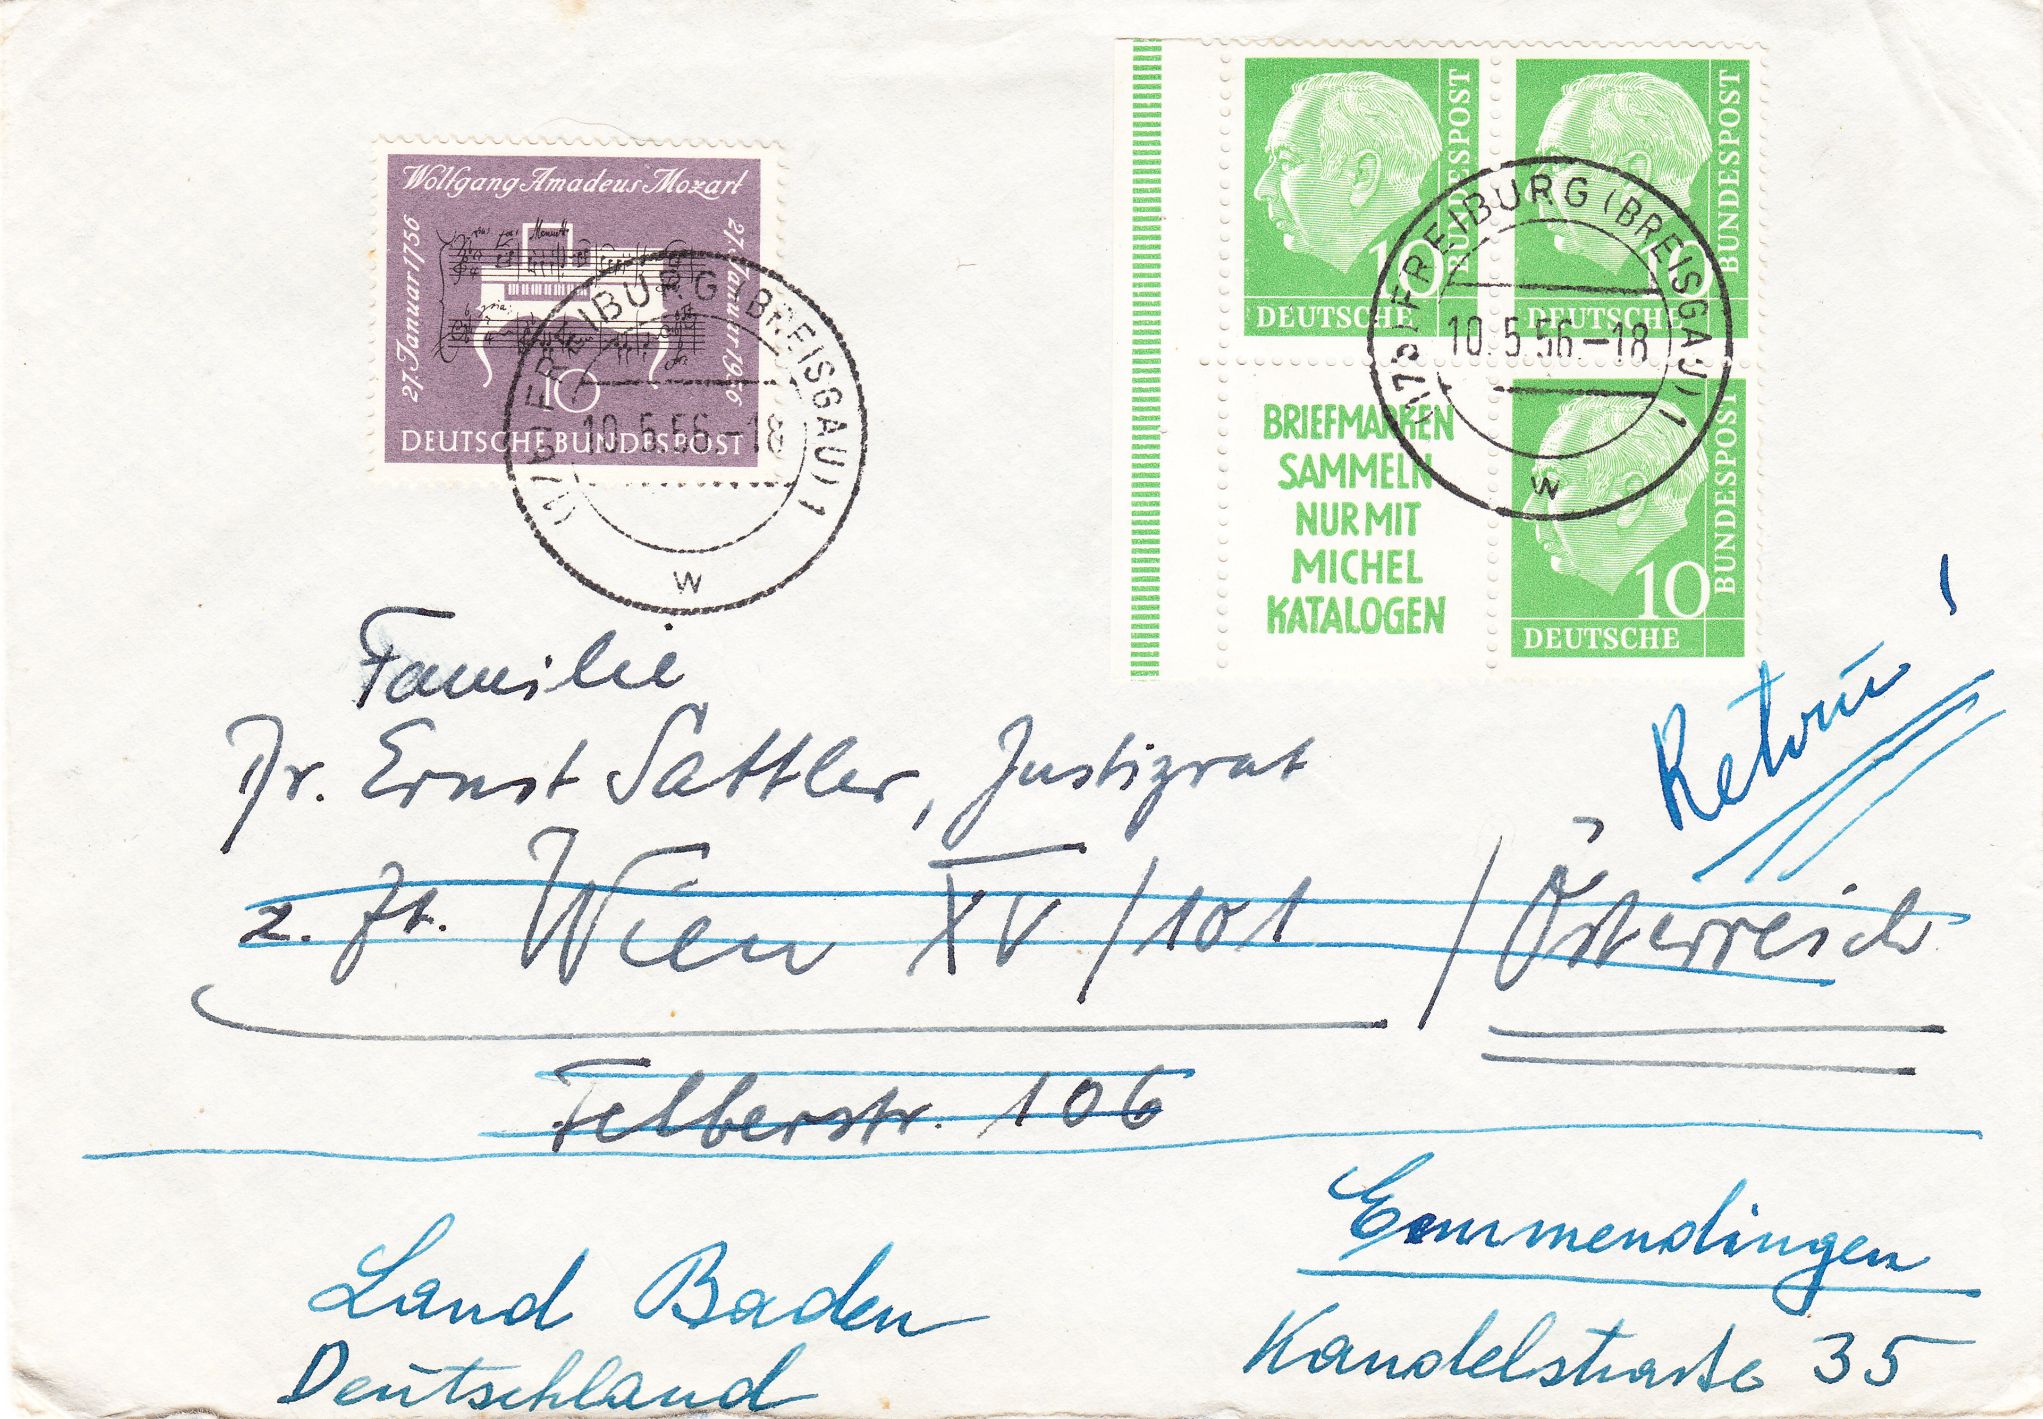 Wolfgang Amadeus Mozart
27. Januar 1756
27. Januar 1956
10
DEUTSCHE BUNDESPOST
(17a) FREIBURG (BREISGAU) 1
10.5.56.-18
w
10
BUNDESPOST
DEUTSCHE
10
BUNDESPOST
DEUTSCHE
(17a) FREIBURG (BREISGAU) 1
10.5.56.-18
w
BRIEFMARKEN
SAMMELN
NUR MIT
MICHEL
KATALOGEN
10
BUNDESPOST
DEUTSCHE
Retour!
Familie
Dr. Ernst Sattler, Justizrat
z. Zt. Wien XV/101 / Österreich
Felberstr. 106
Emmendingen
Land Baden
Kandelstraße 35
Deutschland